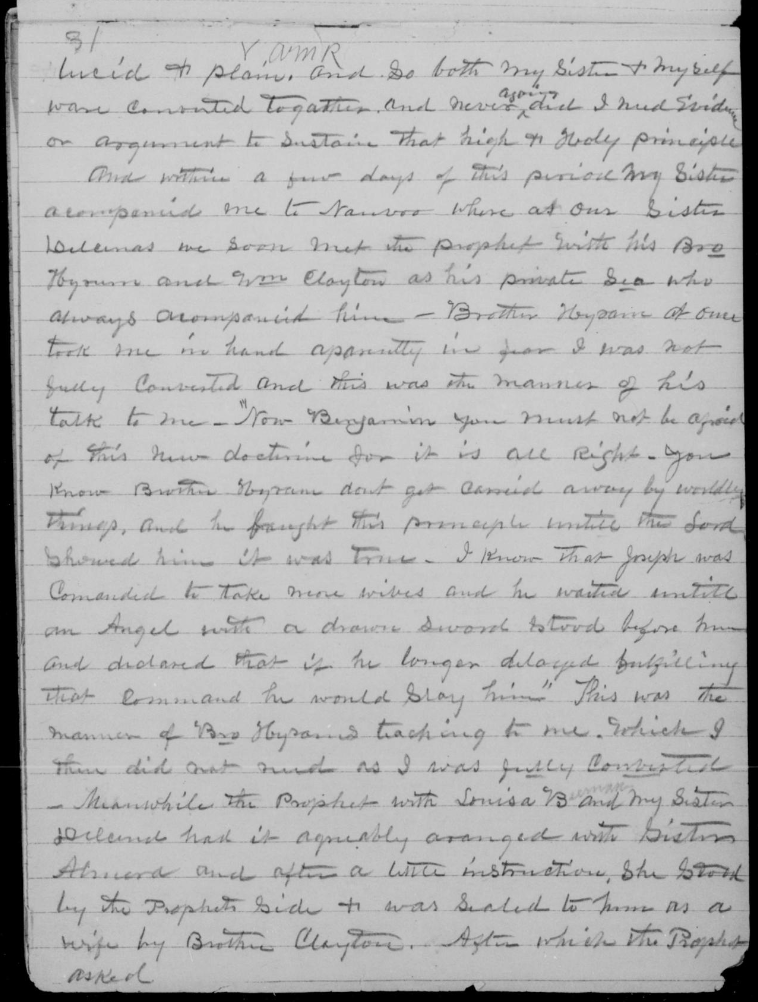 31
Y AMR
lucid & plain. and So both my Sister & myself
ware converted togather. and never again did I need Evidence
or argument to Sustain that high & Holy principle
And within a few days of this period My Sister
acompenied me to Nauvoo whare at our Sister
Delcenas we Soon met the prophet with his Bro
Hyrum and Wm Clayton as his private Sec who
always acompanied him — Brother Hyram at once
took me in hand aparently in fear I was not
fully Converted and this was the manner of his
talk to me — "Now Benjamin you must not be afraid
of this new doctrine for it is all Right. You
Know Brother Hyram dont get carried away by worldly
things, and he faught this principle untill the Lord
Showed him it was true. I know that Joseph was
Comanded to take more wives and he waited untill
an Angel with a drawn Sword Stood before him
and declared that if he longer delayed fulfilling
that Command he would Slay him" This was the
manner of Bro Hyrams teaching to me. Which I
then did not need as I was fully Converted
— Meanwhile the Prophet with Louisa Beeman and My Sister
Delcena had it agreably aranged with Sister
Almara and after a little instruction, She Stood
by the Prophets Side & was Sealed to him as a
wife by Brother Clayton. After which the Prophet
asked